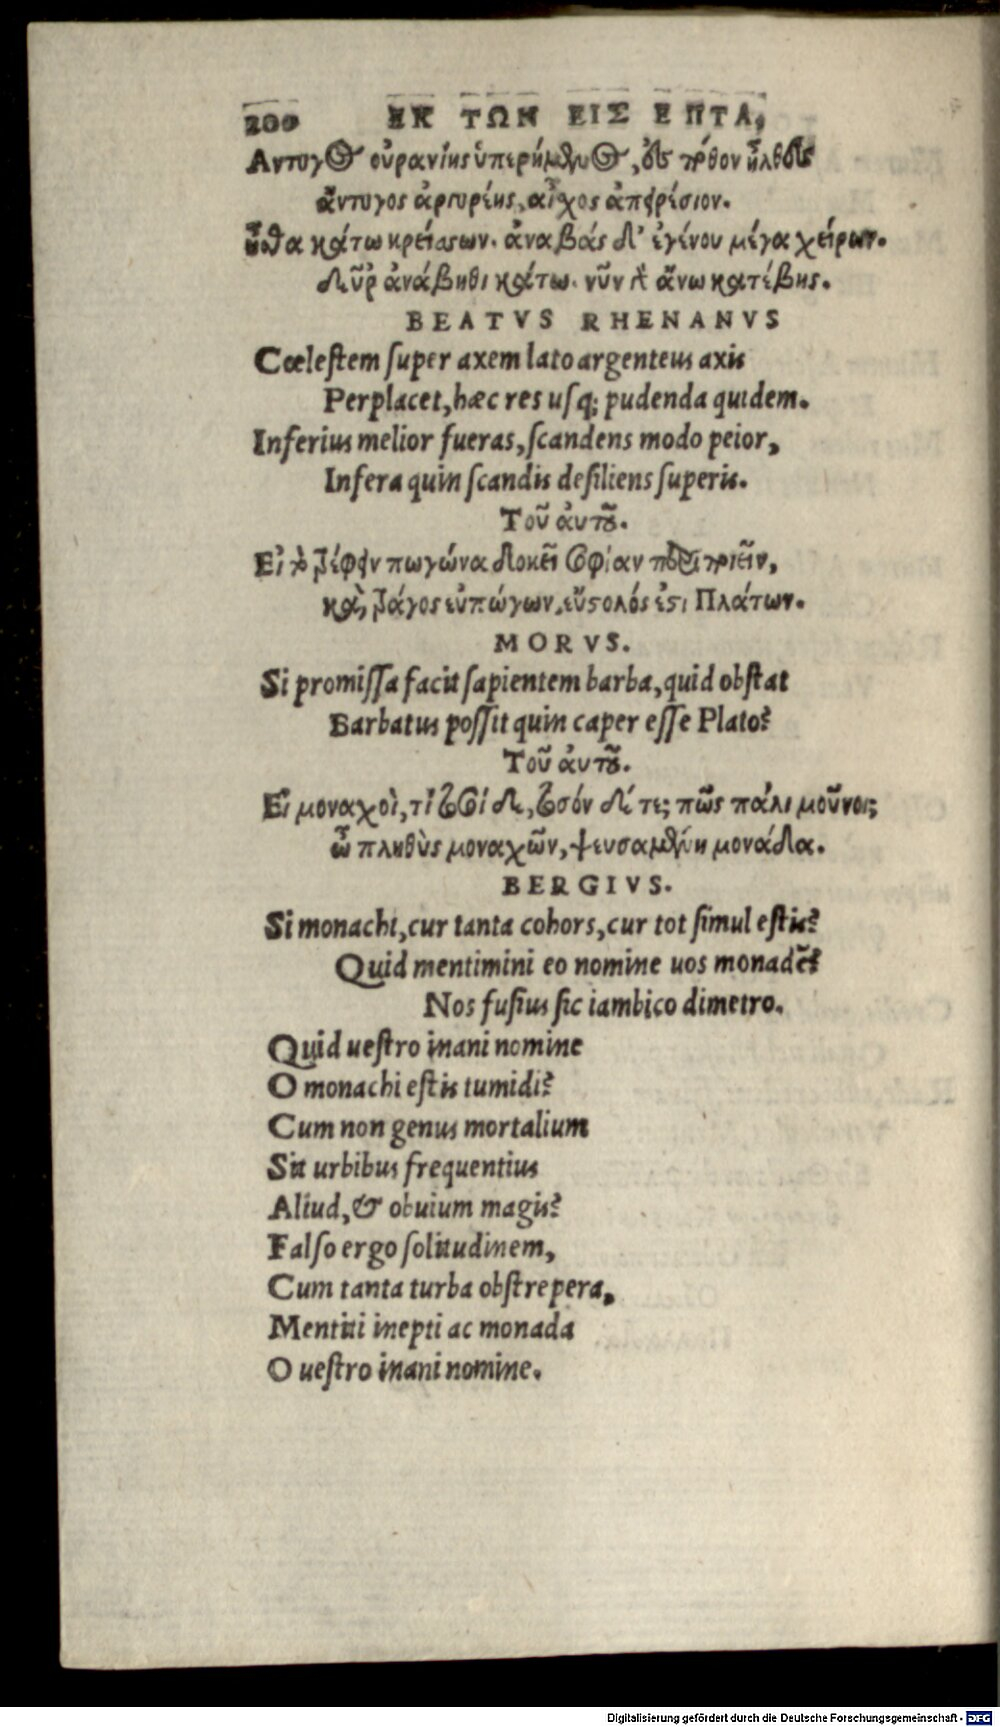 200 ΕΚ ΤΩΝ ΕΙΣ ΕΠΤΑ,
Αντυγος οὐρανίης ὑπερήμενος, ἐς πόθον ἦλθες
ἄντυγος ἀργυρέης, αἶχος ἀπειρέσιον.
ἦσθα κάτω κρείασων. ἀναβὰς δ' ἐγένου μέγα χείρων.
δεῦρ ἀνάβηθι κάτω. νῦν δὲ ἄνω κατέβης.
BEATVS RHENANVS
Cœleſtem ſuper axem lato argenteus axis
Perplacet, hæc res uſq; pudenda quidem.
Inferius melior fueras, ſcandens modo peior,
Infera quin ſcandis deſiliens ſuperis.
Τοῦ ἀυτοῦ.
Εἰ τὸ τρέφειν πωγώνα δοκεῖ σοφίαν ποιεῖν,
καὶ τράγος εὐπώγων, εὔστολός ἐστι Πλάτων.
MORVS.
Si promiſſa facit ſapientem barba, quid obſtat
Barbatus poſſit quin caper eſſe Plato?
Τοῦ ἀυτοῦ.
Εἰ μοναχοὶ, τί τοσοίδε, τοσόνδέ τε; πῶς πάλι μοῦνοι;
ὦ πληθὺς μοναχῶν, ψευσαμένη μονάδα.
BERGIVS.
Si monachi, cur tanta cohors, cur tot ſimul eſtis?
Quid mentimini eo nomine uos monadẽ?
Nos fuſius ſic iambico dimetro.
Quid ueſtro inani nomine
O monachi eſtis tumidi?
Cum non genus mortalium
Sit urbibus frequentius
Aliud, & obuium magis?
Falſo ergo ſolitudinem,
Cum tanta turba obſtrepera,
Mentiti inepti ac monada
O ueſtro inani nomine.
Digitalisierung gefördert durch die Deutsche Forschungsgemeinschaft - DFG